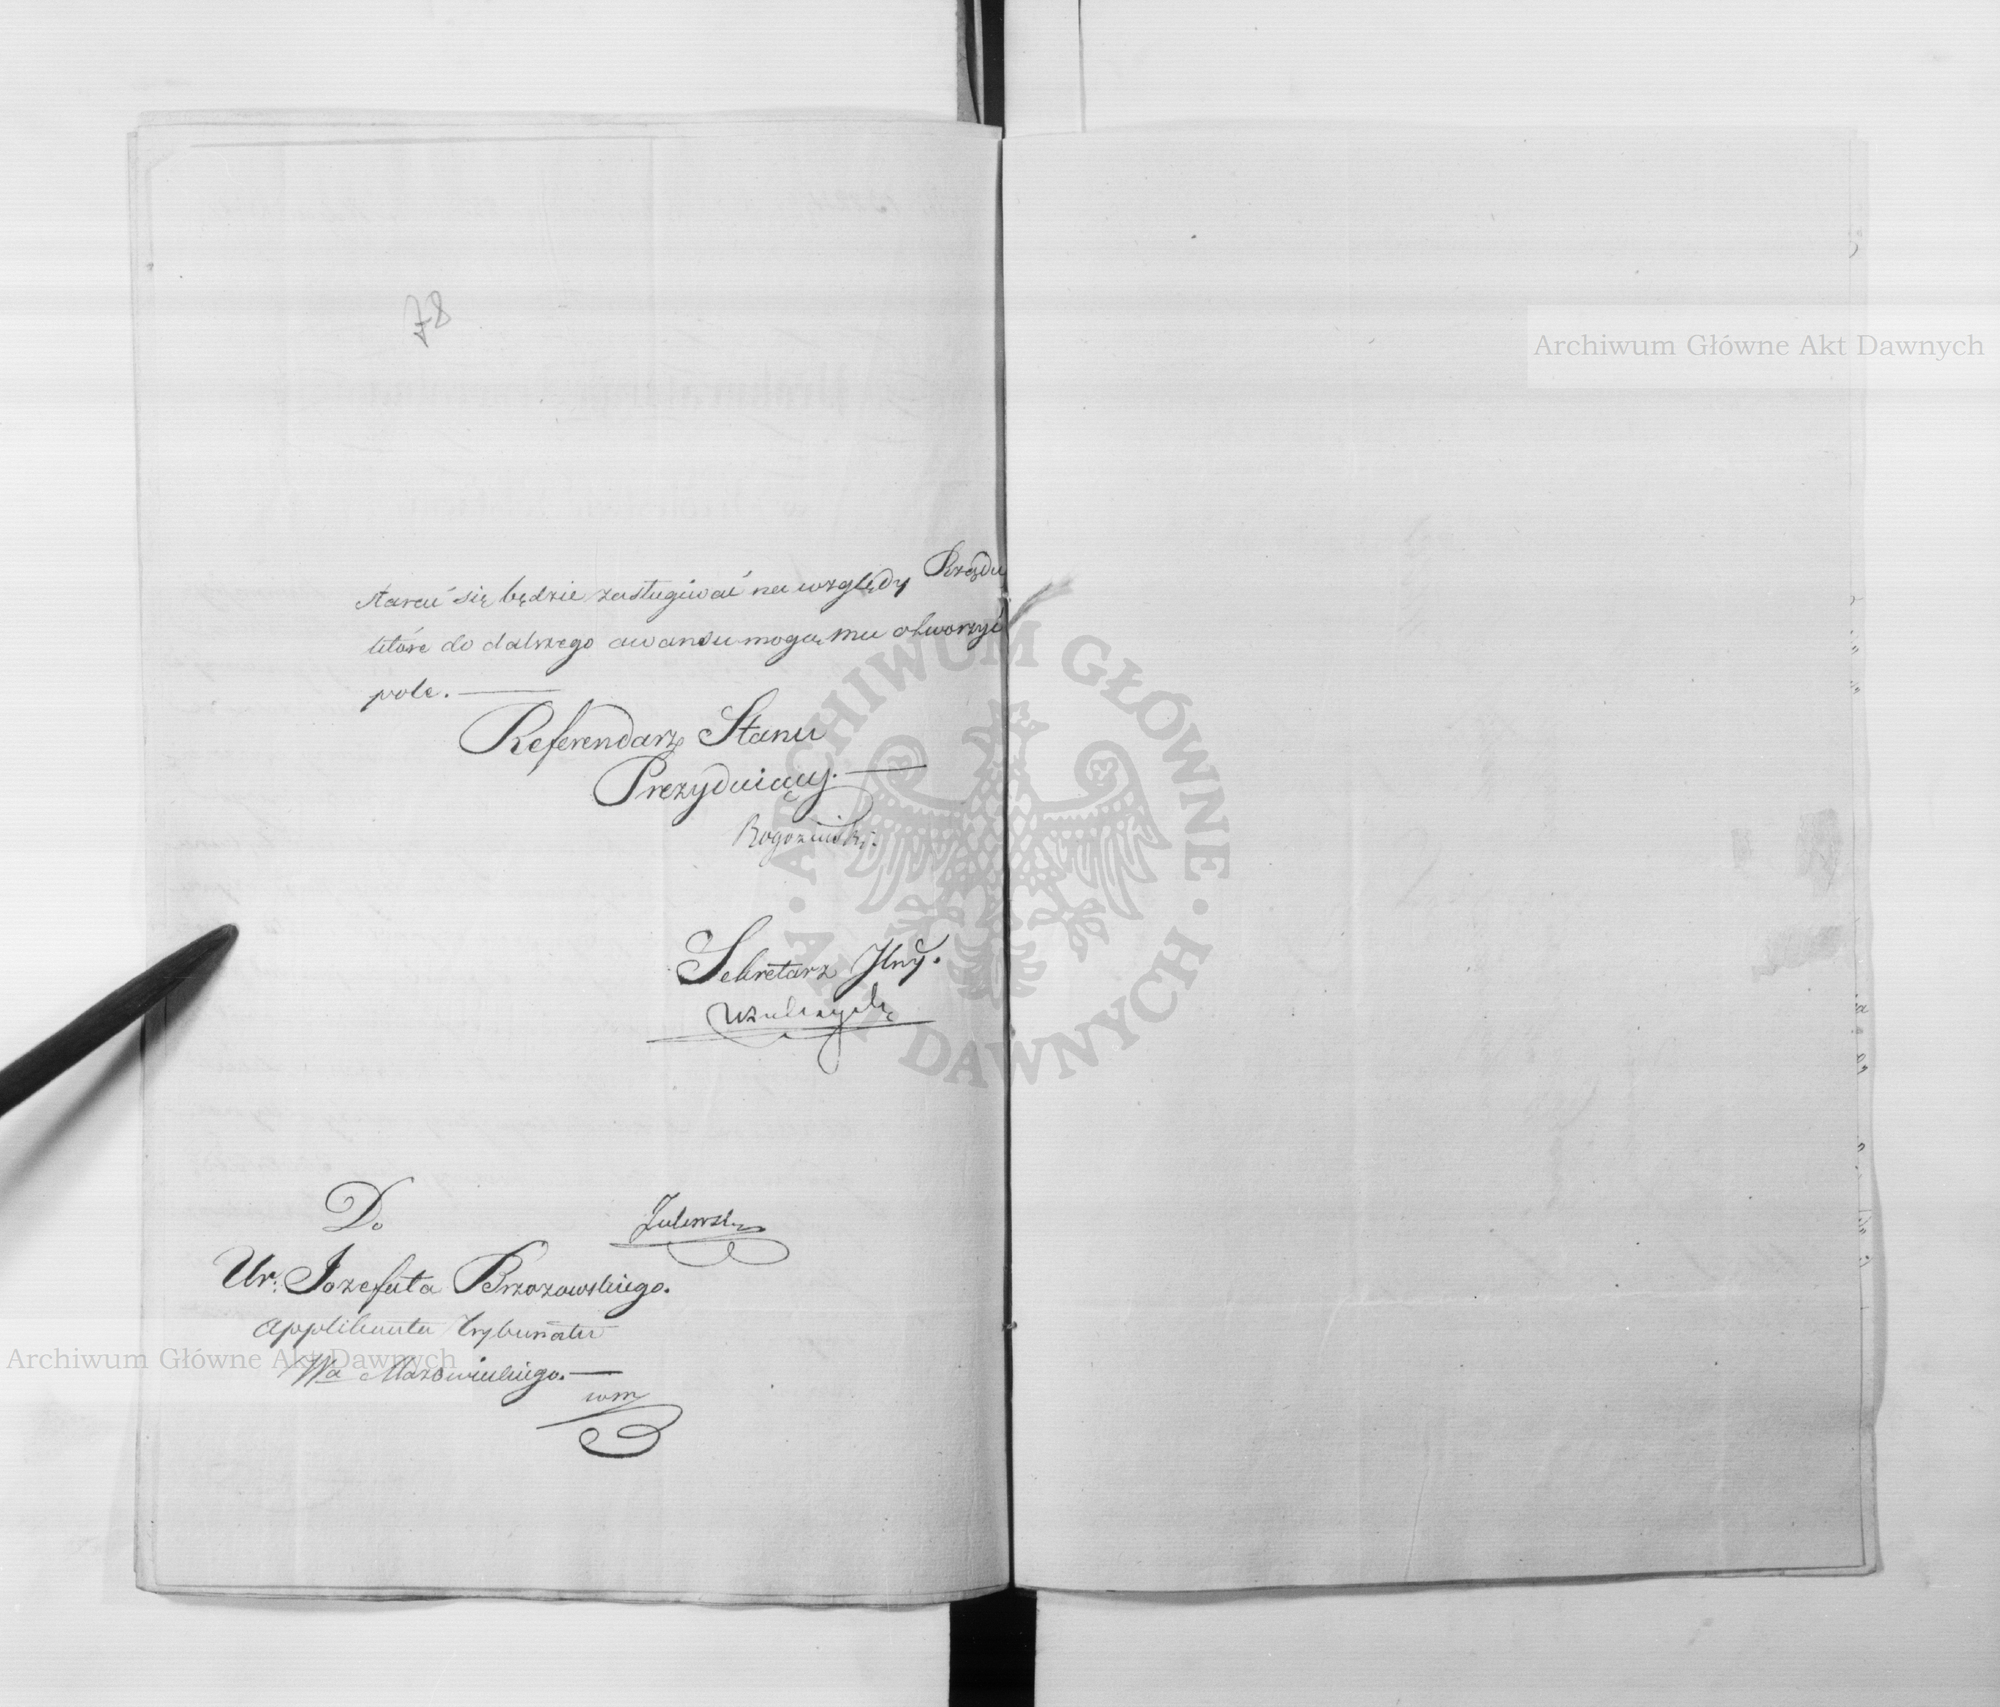 78
starać się będzie zasługiwać na względy Rządu
które do dalszego awansu mogą mu otworzyć
pole.
Referendarz Stanu
Prezyduiący.
Sekretarz Jlny.
Do
Ur: Jozefata Brzozowskiego.
Applikanta Trybunału
Wa Mazowieckiego.
Archiwum Główne Akt Dawnych
Archiwum Główne Akt Dawnych
ARCHIWUM GŁÓWNE AKT DAWNYCH